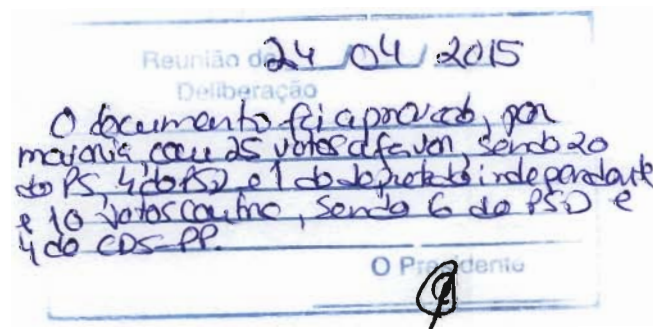 Reunião de 24/04/2015
Deliberação
O documento foi aprovado, por
maioria, com 25 votos a favor, sendo 20
do PS, 4 do PSD e 1 do deputado independente
e 10 votos contra, sendo 6 do PSD e
4 do CDS-PP.
O Presidente